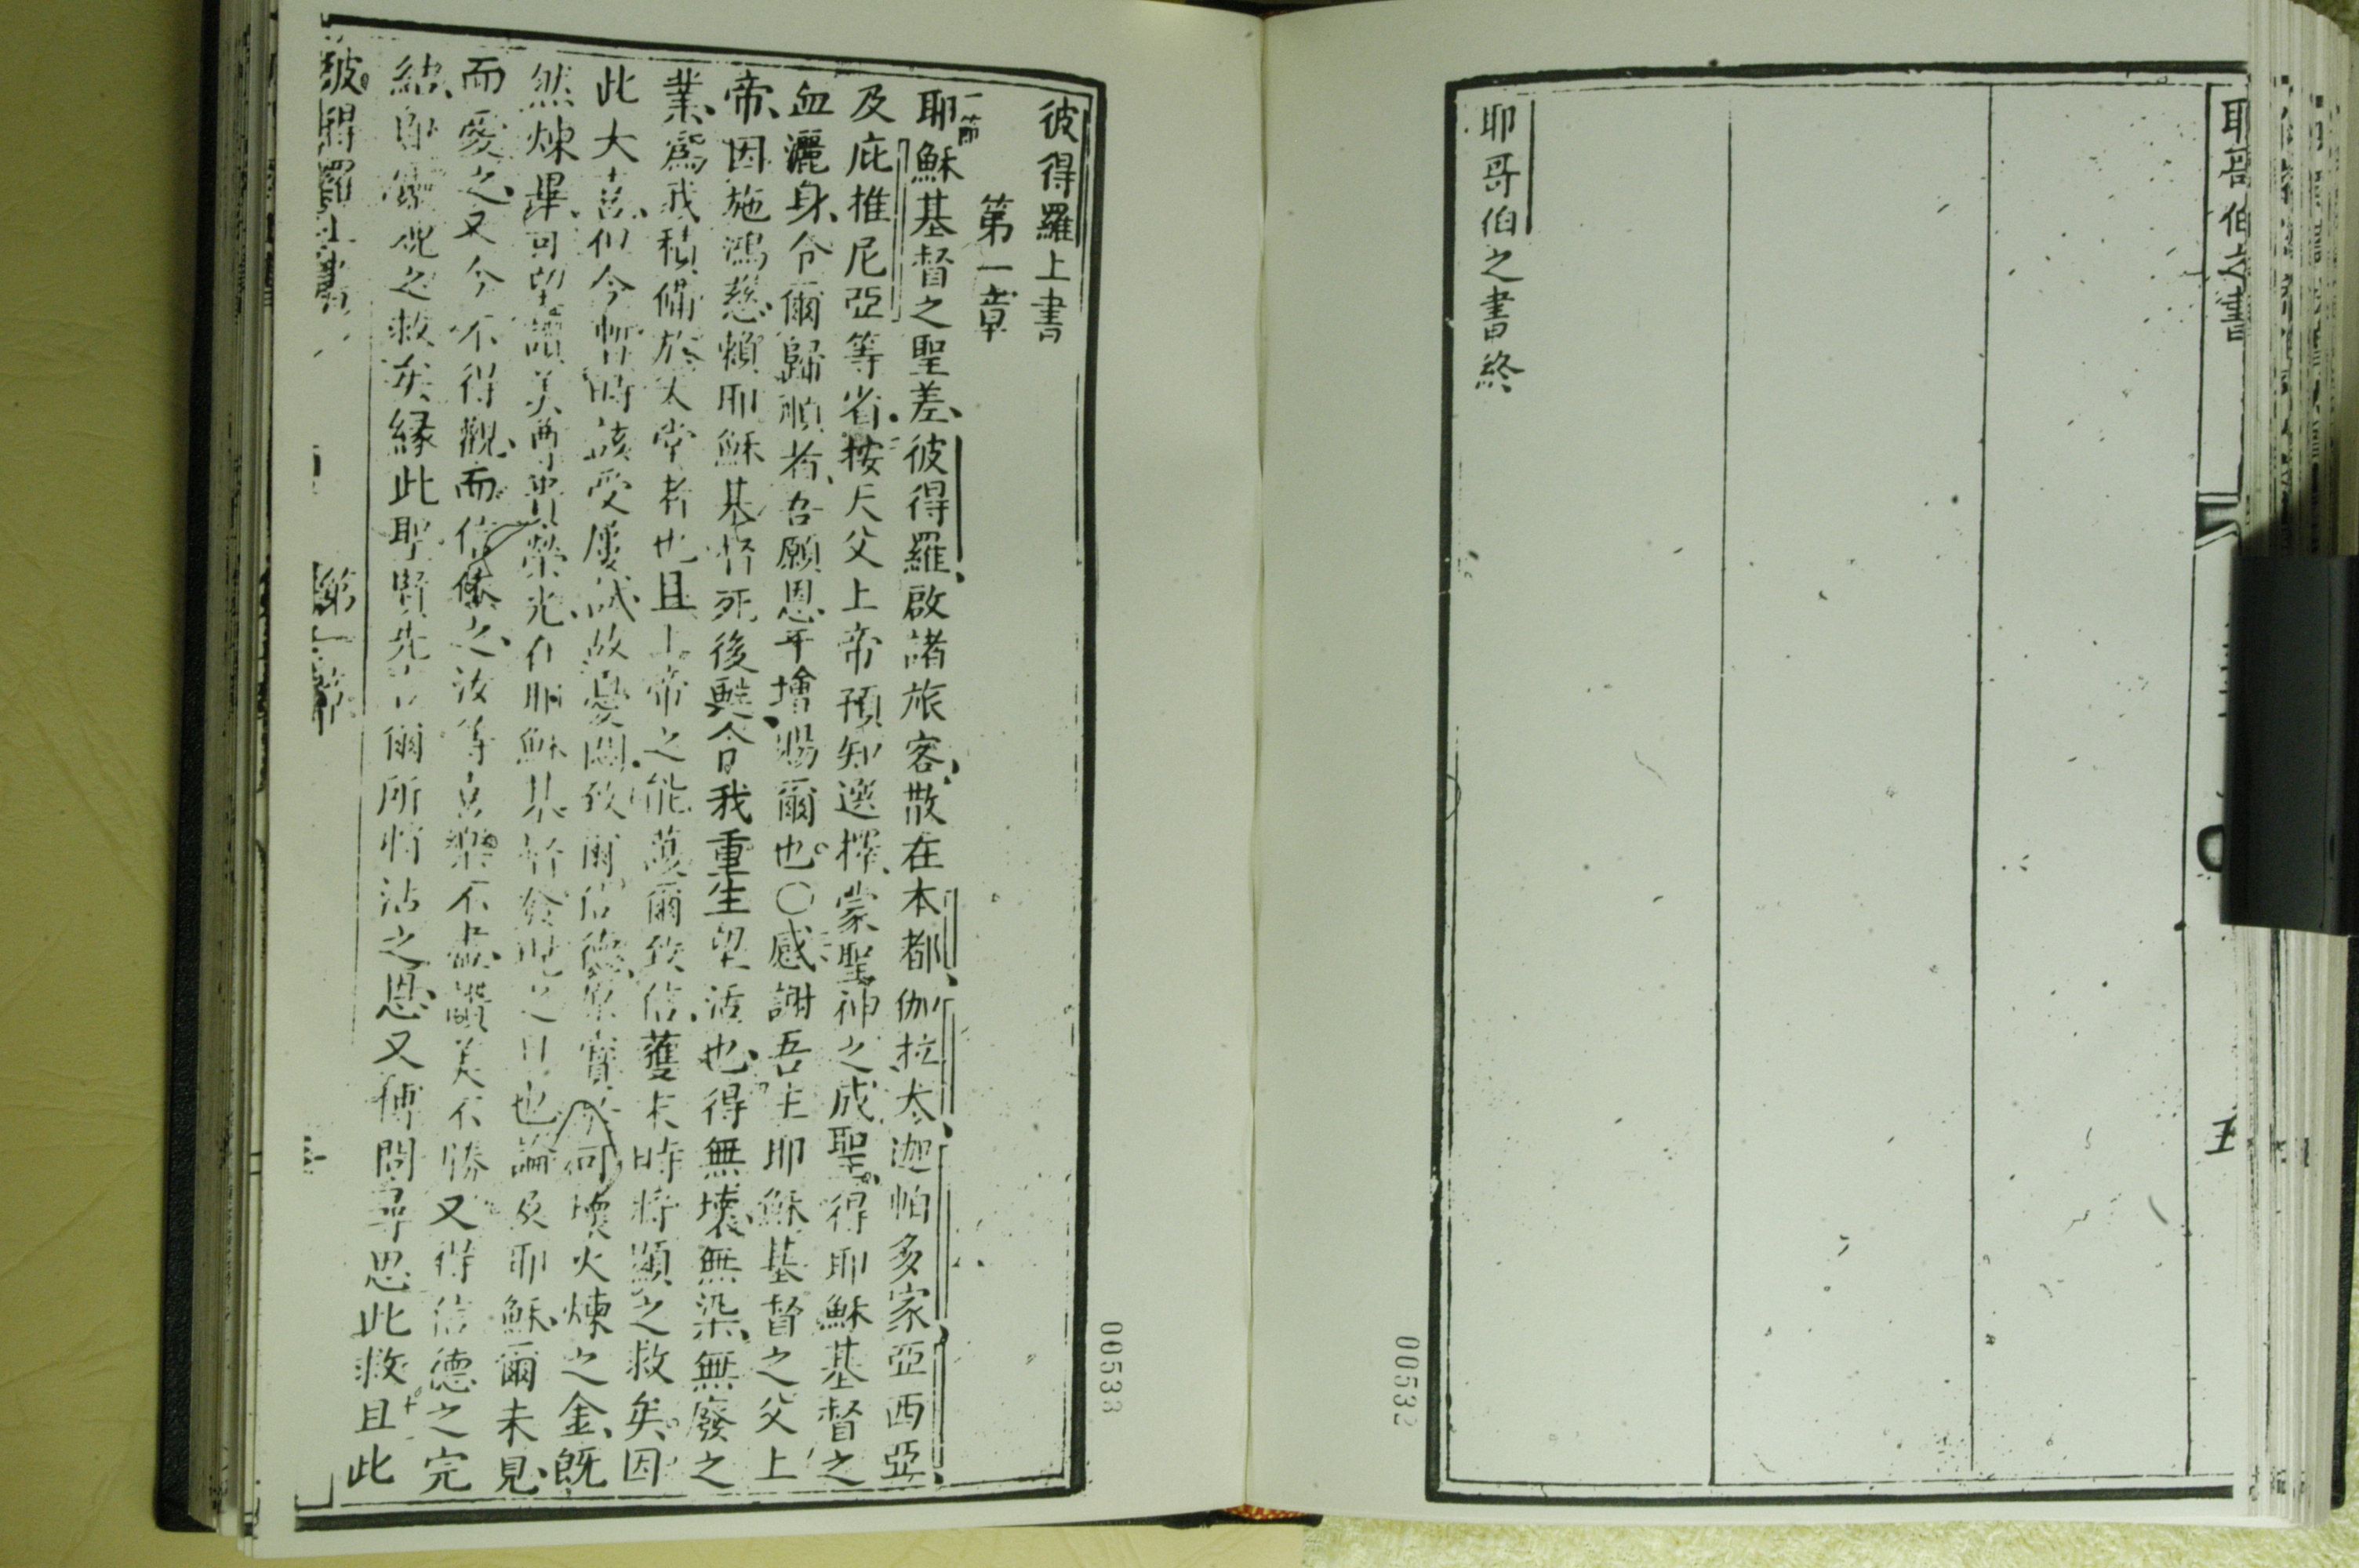 耶哥伯之書
五
耶哥伯之書終
00532
彼得羅上書
第一章
一節
耶穌基督之聖差、彼得羅、啟諸旅客、散在本都、伽拉大、迦帕多家、亞西亞、
及庇推尼亞等省。按天父上帝預知選擇、蒙聖神之成聖。得耶穌基督之
血灑身、令爾歸順者、吾願恩平增賜爾也。〇感謝吾主耶穌基督之父上
帝、因施鴻慈、賴耶穌基督死後甦、令我重生望活也、得無壞、無染、無廢之
業、為我積備於天堂者也且上帝之能護爾致信、獲末時將顯之救矣。因
此大喜、但今暫時該受屢試故憂悶、致爾信德 實 可壞火煉之金、既
然煉畢、可望讚美尊貴榮光、在耶穌基督發現之日也論及耶穌、爾未見、
而愛之、又今不得觀、而信依之、汝等喜樂不盡、讚美不勝又得信德之完
結、即靈魂之救矣緣此聖賢先言爾所將沾之恩、又博問尋思此救。且此
彼得羅上書
第一章
00533